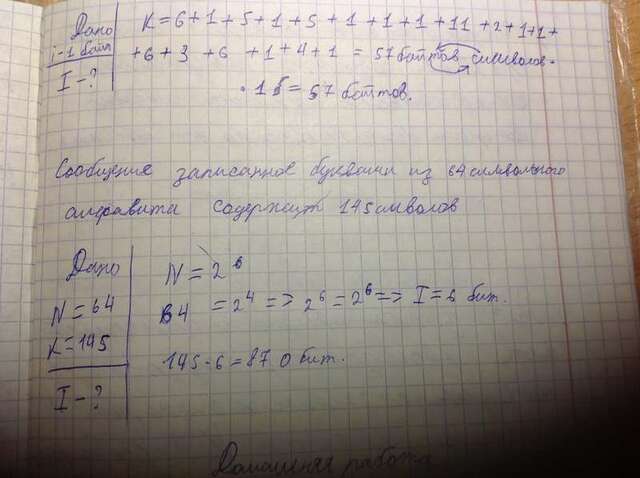 Дано
K = 6+1+5+1+5+1+1+1+11+2+1+1+
i-1 байт
+6+3+6+1+4+1 = 57 байтов символов.
I-?
· 1 б = 57 байтов.
Сообщение записанное буквами из 64 символьного
алфавита содержит 145 символов
Дано
N = 2^6
N = 64
64 = 2^4 => 2^6 = 2^6 => I = 6 бит.
K = 145
145·6 = 870 бит.
I-?
Домашняя работа